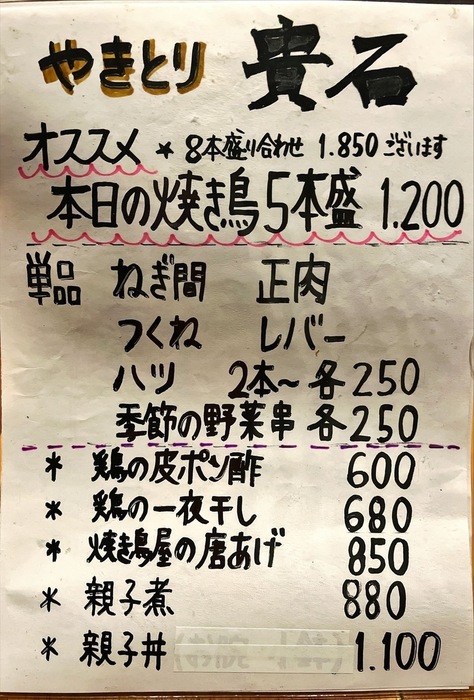 やきとり 貴石
オススメ * 8本盛り合わせ 1.850 ございます
本日の焼き鳥5本盛 1.200
単品 ねぎ間 正肉
つくね レバー
ハツ 2本〜各250
季節の野菜串 各250
* 鶏の皮ポン酢 600
* 鶏の一夜干し 680
* 焼き鳥屋の唐あげ 850
* 親子煮 880
* 親子丼 1.100